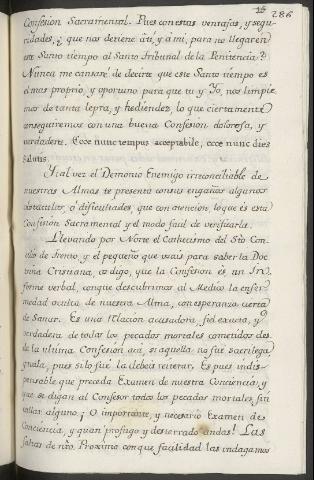 286
Confesion Sacramental. Pues con estas ventajas, y segu-
ridades, ¿ que nos detiene a ti y a mi, para no llegar en
este Santo tiempo al Santo Tribunal de la Penitencia?
Nunca me cansaré de decirte que este Santo tiempo es
el mas proprio, y oportuno para que tu y Yo, nos limpie
mos de tanta lepra, y hediendez, lo que ciertamente
conseguiremos con una buena Confesion dolorosa, y
verdadera. Ecce nunc tempus acceptabile, ecce nunc dies
salutis.
Y tal vez el Demonio Enemigo irreconciliable de
nuestras Almas te presenta con sus engaños algunos
obstaculos, ó dificultades, que con atencion, lo que es esta
Confesion Sacramental y el modo facil de verificarla.
Llevando por Norte el Cathecismo del Sto Con-
cilio de Trento, y el pequeño que usais para saber la Doc
trina Cristiana, os digo, que la Confesion es un In-
forme verbal, con que descubrimos al Medico la enfer
medad oculta de nuestra Alma, con esperanza cierta
de Sanar. Es una relacion acusadora, fiel exacta, y
verdadera de todos los pecados mortales cometidos des
de la ultima Confesion acá, si aquella no fué sacrilega
ó nula, pues si lo fué la debeis reiterar. Es pues indis-
pensable que preceda Examen de nuestra Conciencia, y
que se digan al Confesor todos los pecados mortales, sin
callar alguno ¡ O importante, y necesario Examen de
Conciencia, y quan profugo y desterrado andas! Las
faltas de nro. Proximo con que facilidad las indagamos